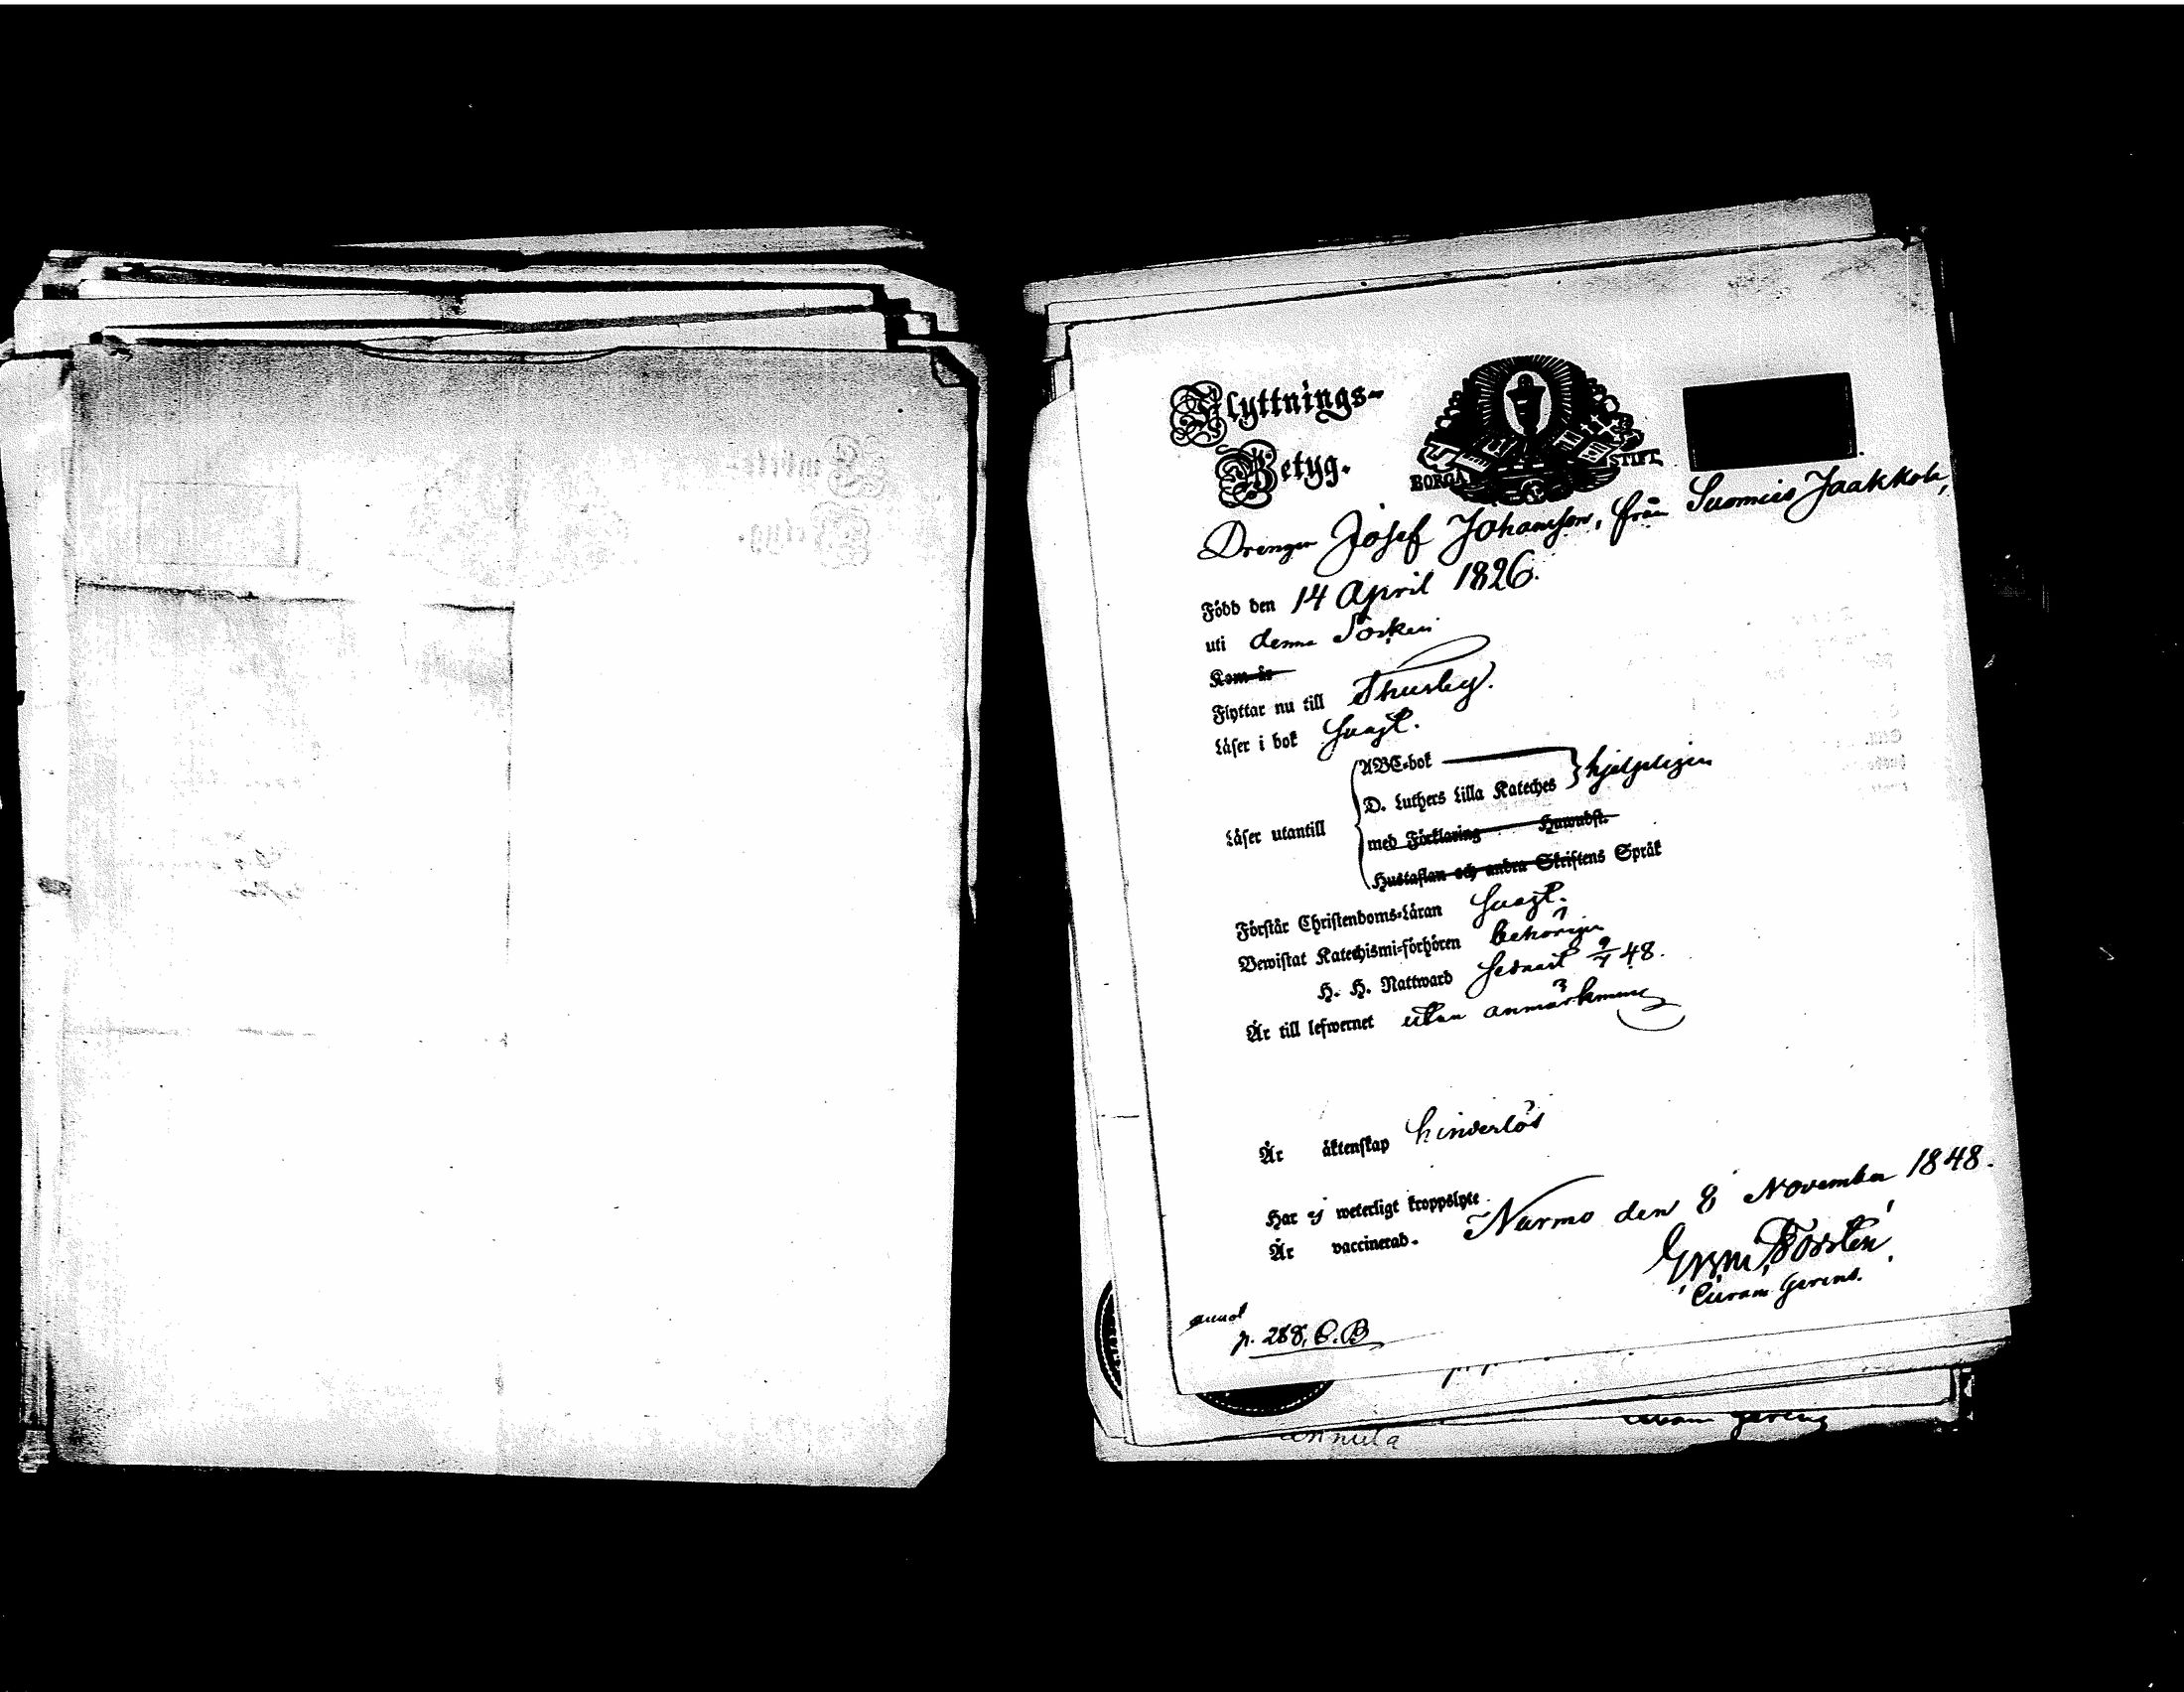 Flyttnings-
Betyg.
BORGÅ STIFT.
Drengen Josef Johansson, från Suomies Jaakkola,
Född den 14 April 1826.
uti denna Socken
Kom år
Flyttar nu till Thusby.
Läser i bok svagt.
Läser utantill
ABC-bok
D. Luthers Lilla Kateches } hjelpligen
med Förklaring Huwudst.
Hustaflan och andra Skriftens Språk
Förstår Christendoms-Läran svagt.
Bewistat Katechismi-förhören behörigen
H. H. Nattward sednast 9/7 48.
Är till lefwernet utan anmärkning
Är äktenskap hinderlös
Har ej weterligt kroppslyte
Är vaccinerad.
Nurmo den 8 November 1848.
Forstén
Curam Gerens.
annot
p. 288, C. B
Curam gerens